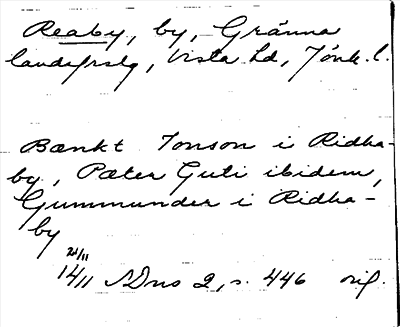 Reaby, by, Gränna
landsfrslg, Vista hd, Jönk. l.
Bænkt Jonson i Ridha-
by, Pæter Guti ibidem,
Gummunder i Ridha-
by
21/11
1411 SDns 2, s. 446 orig.